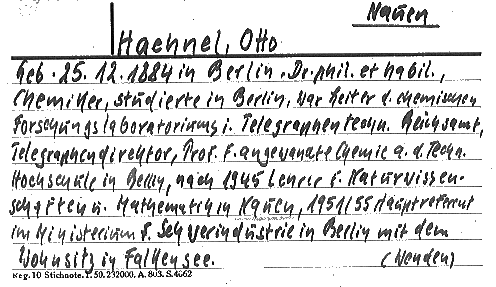 Nauen
Haehnel, Otto
Geb. 25.12.1884 in Berlin. Dr. phil. et habil.,
Chemiker, studierte in Berlin, war Leiter d. chemischen
Forschungslaboratoriums i. Telegraphentechn. Reichsamt,
Telegraphendirektor, Prof. f. angewandte Chemie a. d. Techn.
Hochschule in Berlin, nach 1945 Lehrer f. Naturwissen-
schaften u. Mathematik in Nauen, 1951/55 Hauptreferent
im Ministerium f. Schwerindustrie in Berlin mit dem
Wohnsitz in Falkensee. (Wenden)
Reg. 10 Stichnote. T. 50. 232000. A. 803. S. 4662